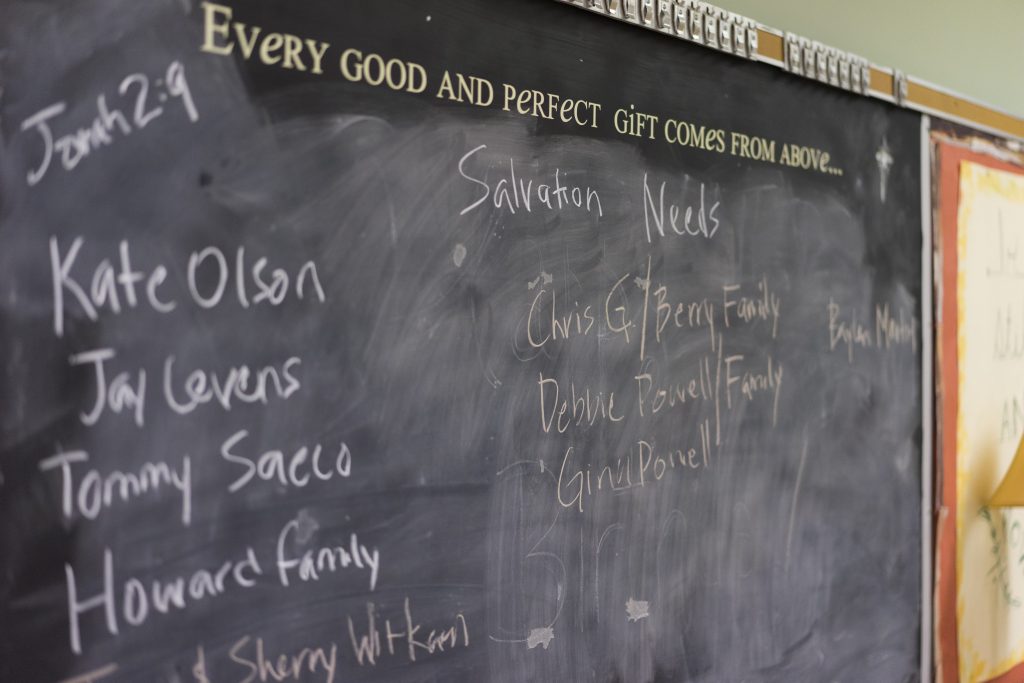 EVERY GOOD AND PERFECT GIFT COMES FROM ABOVE...
Jonah 2:9
Salvation Needs
Kate Olson
Jay Levens
Tommy Sacco
Howard family
Sherry
Chris G./Berry Family
Debbie Powell/Family
Gina Powell